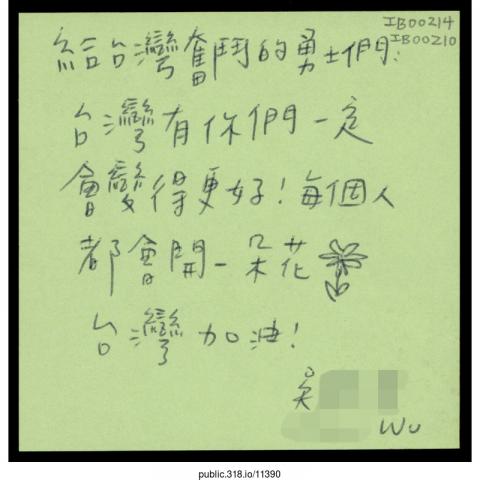 IB00214
IB00210
給台灣奮鬥的勇士們:
台灣有你們一定
會變得更好!每個人
都會開一朵花
台灣加油!
吳
Wu
public.318.io/11390